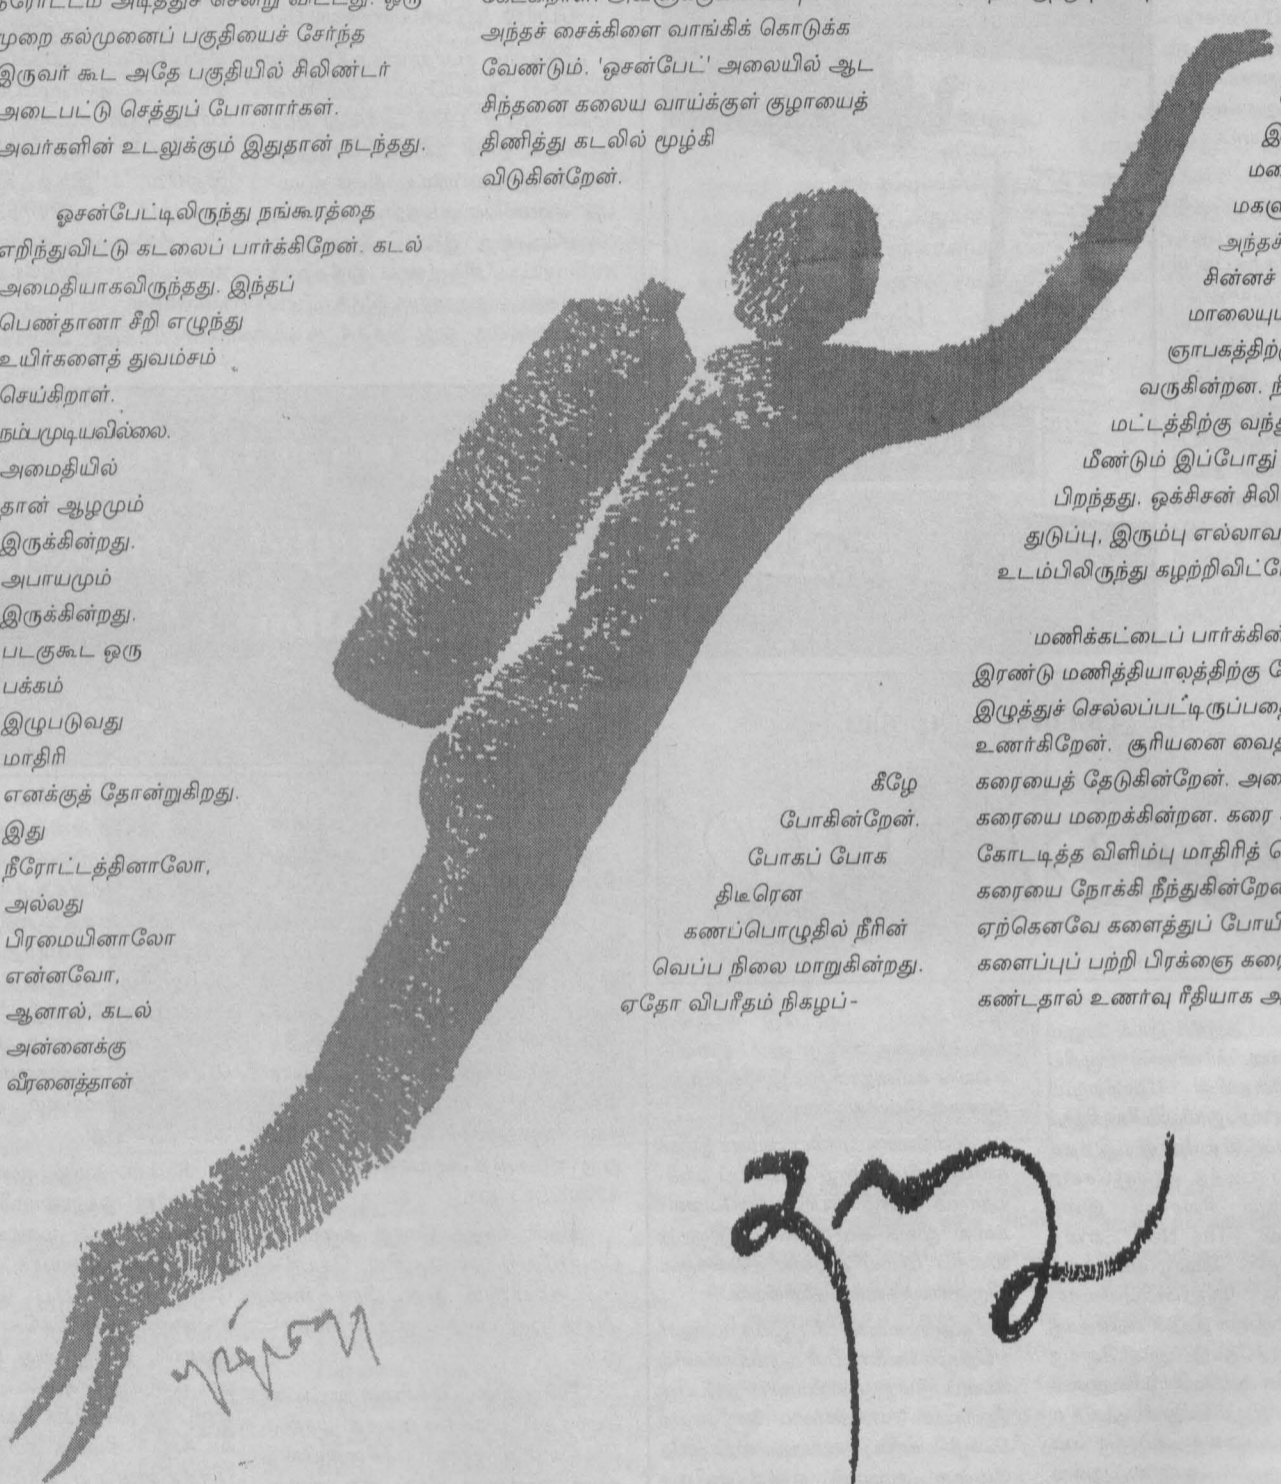 நீரோட்டம் அடித்துச் சென்று விட்டது. ஒரு
முறை கல்முனைப் பகுதியைச் சேர்ந்த
இருவர் கூட அதே பகுதியில் சிலிண்டர்
அடைபட்டு செத்துப் போனார்கள்.
அவர்களின் உடலுக்கும் இதுதான் நடந்தது.
ஓசன்பேட்டிலிருந்து நங்கூரத்தை
எறிந்துவிட்டு கடலைப் பார்க்கிறேன். கடல்
அமைதியாகவிருந்தது. இந்தப்
பெண்தானா சீறி எழுந்து
உயிர்களைத் துவம்சம்
செய்கிறாள்.
நம்பமுடியவில்லை.
அமைதியில்
தான் ஆழமும்
இருக்கின்றது.
அபாயமும்
இருக்கின்றது.
படகுகூட ஒரு
பக்கம்
இழுபடுவது
மாதிரி
எனக்குத் தோன்றுகிறது.
இது
நீரோட்டத்தினாலோ,
அல்லது
பிரமையினாலோ
என்னவோ,
ஆனால், கடல்
அன்னைக்கு
வீரனைத்தான்
அந்தச் சைக்கிளை வாங்கிக் கொடுக்க
வேண்டும். 'ஒசன்பேட்' அலையில் ஆட
சிந்தனை கலைய வாய்க்குள் குழாயைத்
திணித்து கடலில் மூழ்கி
விடுகின்றேன்.
கீழே
போகின்றேன்.
போகப் போக
திடீரென
கணப்பொழுதில் நீரின்
வெப்ப நிலை மாறுகின்றது.
ஏதோ விபரீதம் நிகழப்-
அந்தச்
சின்னச்
மாலையும்
ஞாபகத்திற்கு
வருகின்றன.
மட்டத்திற்கு
மீண்டும் இப்போது
பிறந்தது. ஒக்சிசன்
துடுப்பு, இரும்பு
உடம்பிலிருந்து
மணிக்கட்டைப்
இரண்டு மணித்தியாலத்திற்கு
இழுத்துச்
உணர்கிறேன். சூரியனை
கரையைத் தேடுகின்றேன்.
கரையை மறைக்கின்றன. கரை
கோடடித்த விளிம்பு மாதிரித்
கரையை நோக்கி
ஏற்கெனவே களைத்துப்
களைப்புப் பற்றி பிரக்ஞை
கண்டதால் உணர்வு ரீதியாக